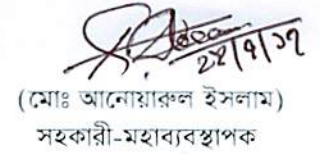 ২৫/৭/১৭
(মোঃ আনোয়ারুল ইসলাম)
সহকারী-মহাব্যবস্থাপক